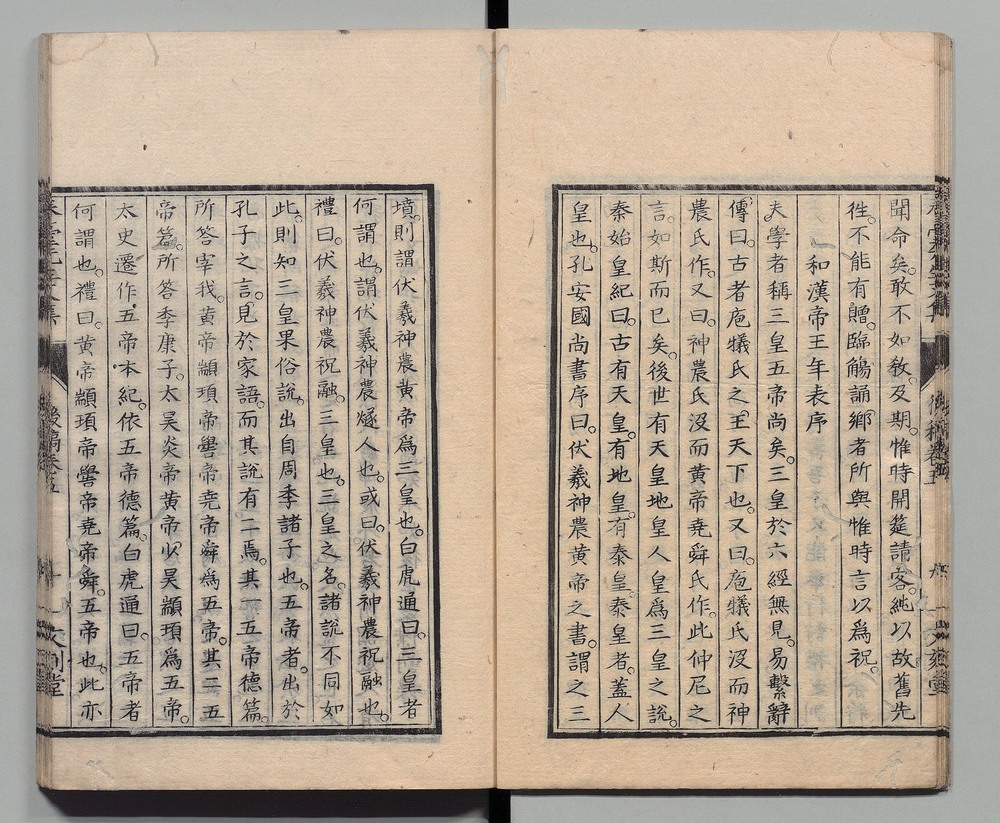 聞命矣。敢不如敎。及期。惟時開筵請客。純以故舊先
徃。不能有贈。臨觴誦鄕者所與惟時言以爲祝。
和漢帝王年表序
夫學者稱三皇五帝尚矣。三皇於六經無見。易繫辭
傳曰。古者庖犧氏之王天下也。又曰。庖犧氏沒而神
農氏作。又曰。神農氏沒而黄帝堯舜氏作。此仲尼之
言。如斯而已矣。後世有天皇地皇人皇爲三皇之說。
秦始皇紀曰。古有天皇。有地皇。有泰皇。泰皇者。蓋人
皇也。孔安國尚書序曰。伏羲神農黄帝之書。謂之三
墳。則謂伏羲神農黄帝爲三皇也。白虎通曰。三皇者
何謂也。謂伏羲神農燧人也。或曰。伏羲神農祝融也。
禮曰。伏羲神農祝融。三皇也。三皇之名。諸說不同如
此。則知三皇果俗說。出自周季諸子也。五帝者。出於
孔子之言。見於家語。而其說有二焉。其一五帝德篇。
所答宰我。黄帝顓頊帝嚳帝堯帝舜爲五帝。其二五
帝篇。所答季康子。太昊炎帝黄帝少昊顓頊爲五帝。
太史遷作五帝本紀。依五帝德篇。白虎通曰。五帝者
何謂也。禮曰。黄帝顓頊帝嚳帝堯帝舜。五帝也。此亦
後稿卷五